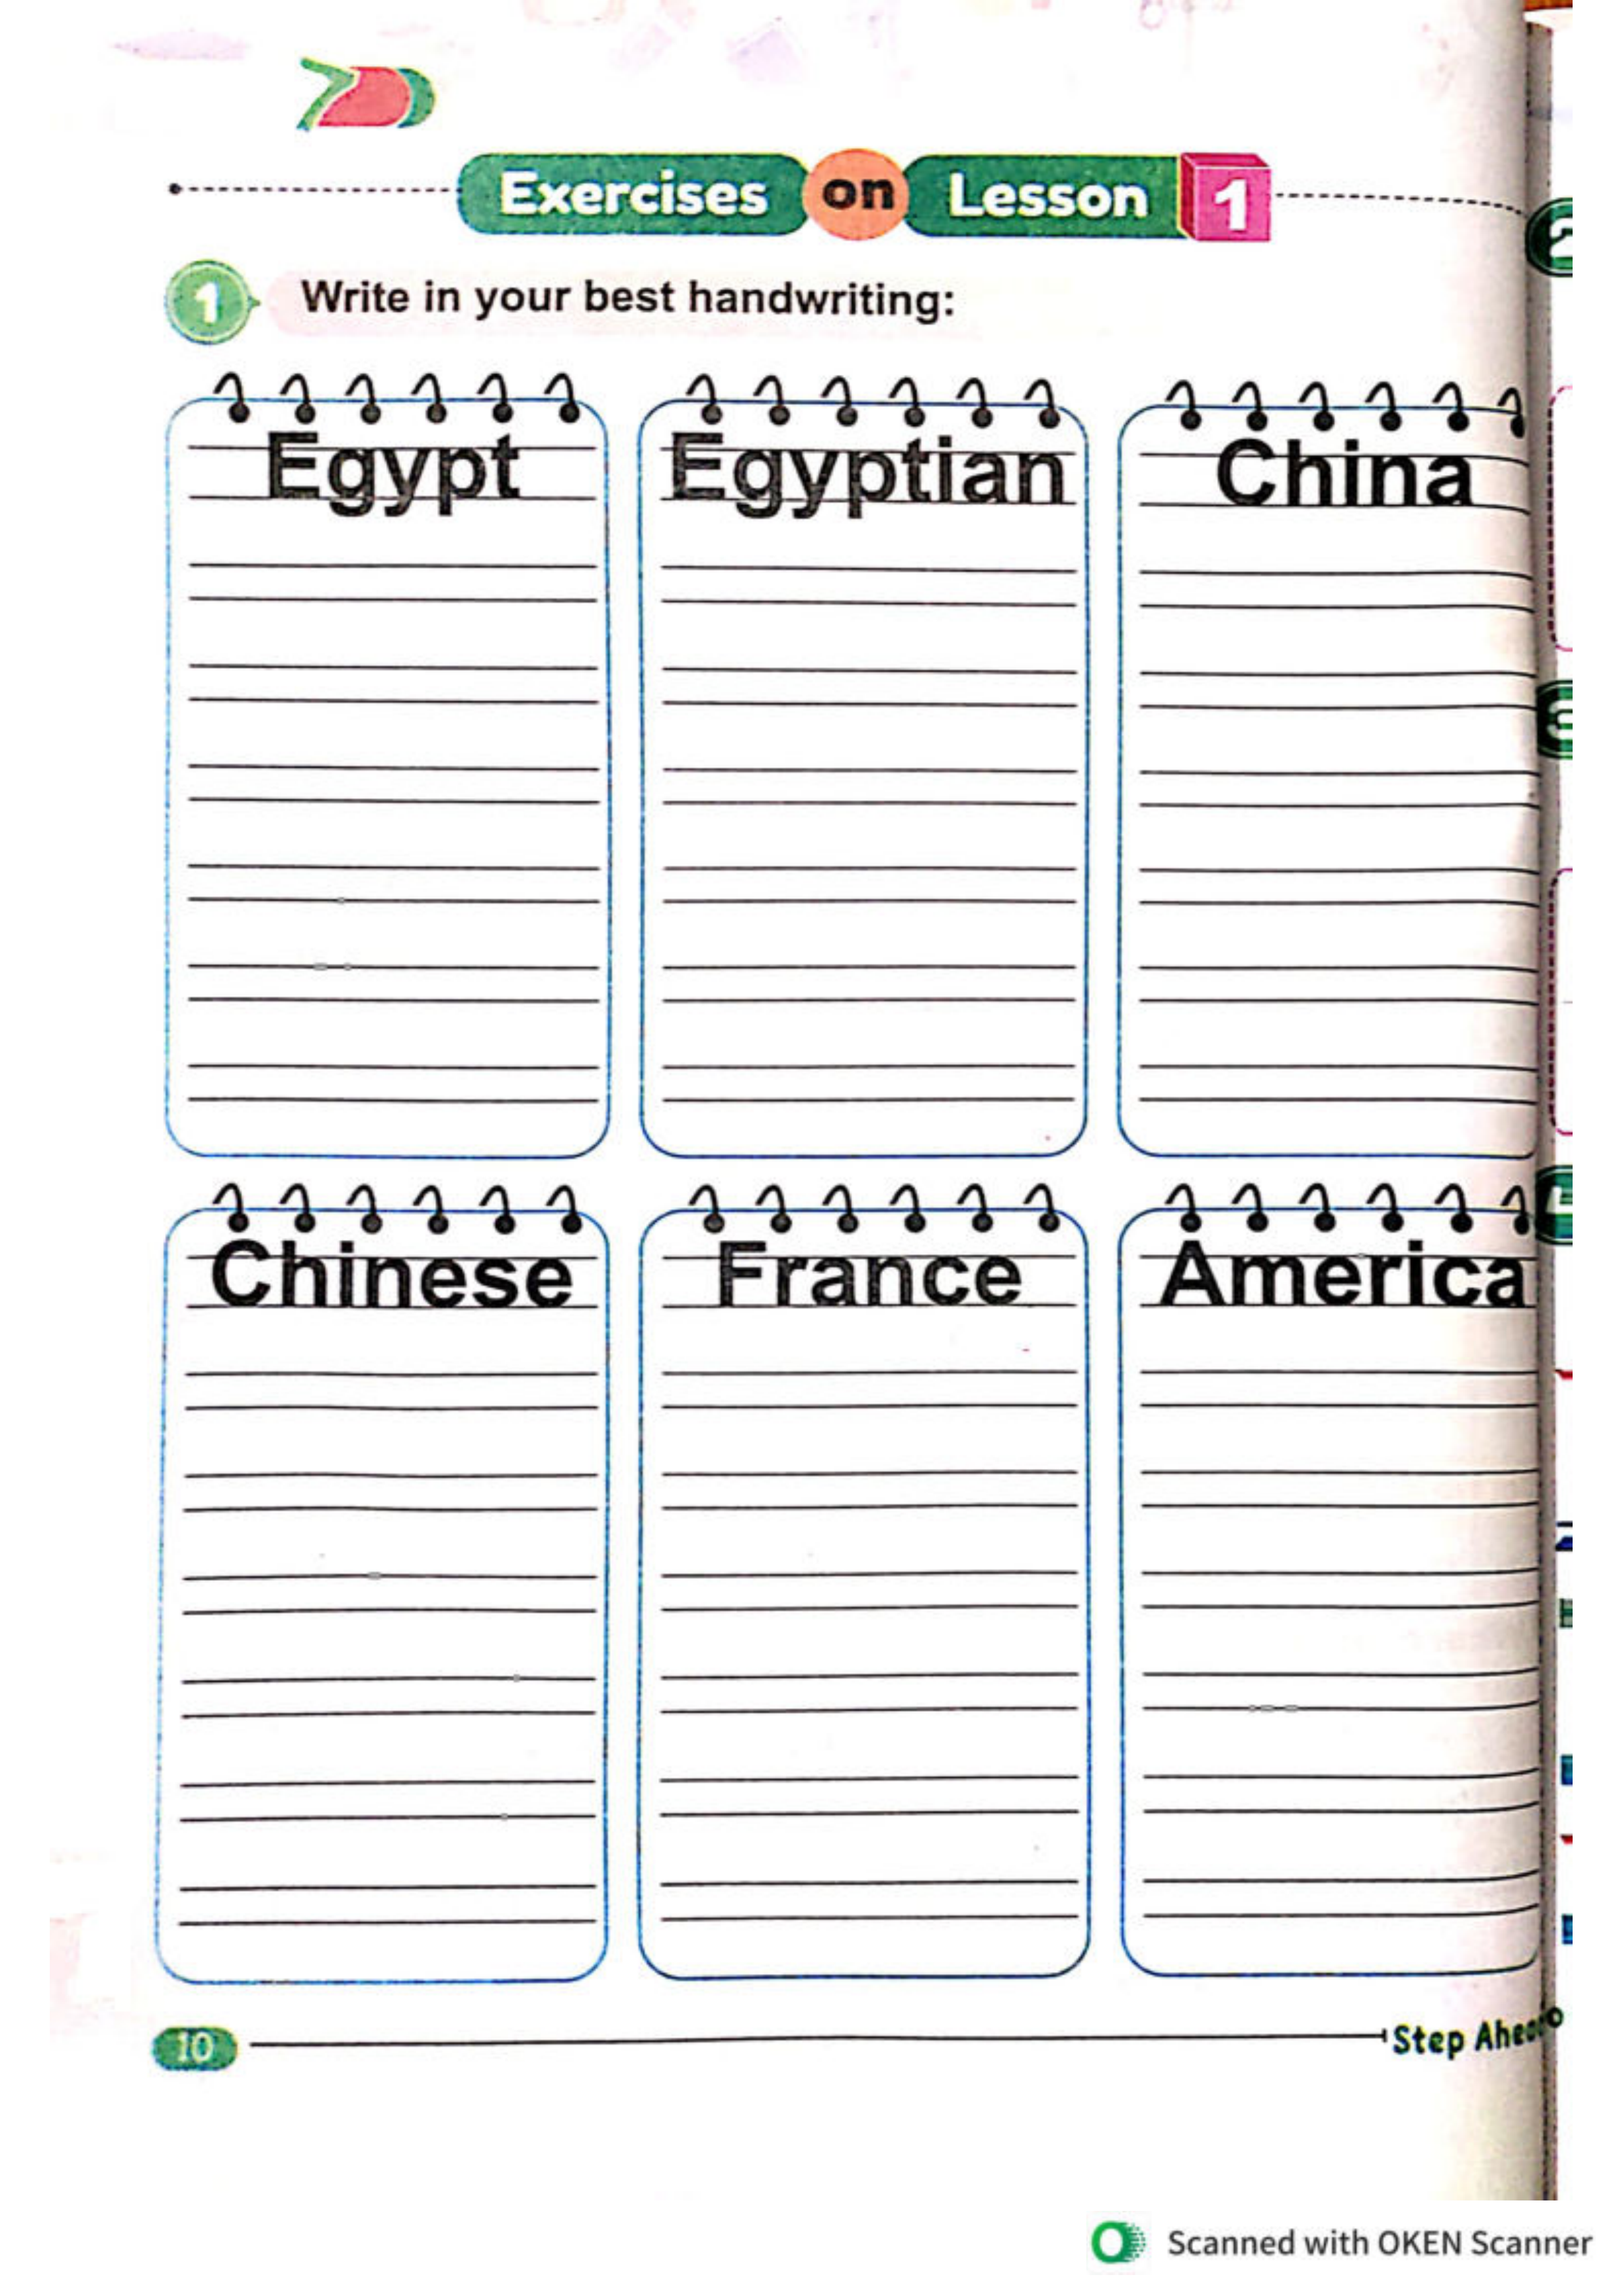 Exercises on Lesson 1
1 Write in your best handwriting:
Egypt Egyptian China
Chinese France America
10 Step Ahead
Scanned with OKEN Scanner